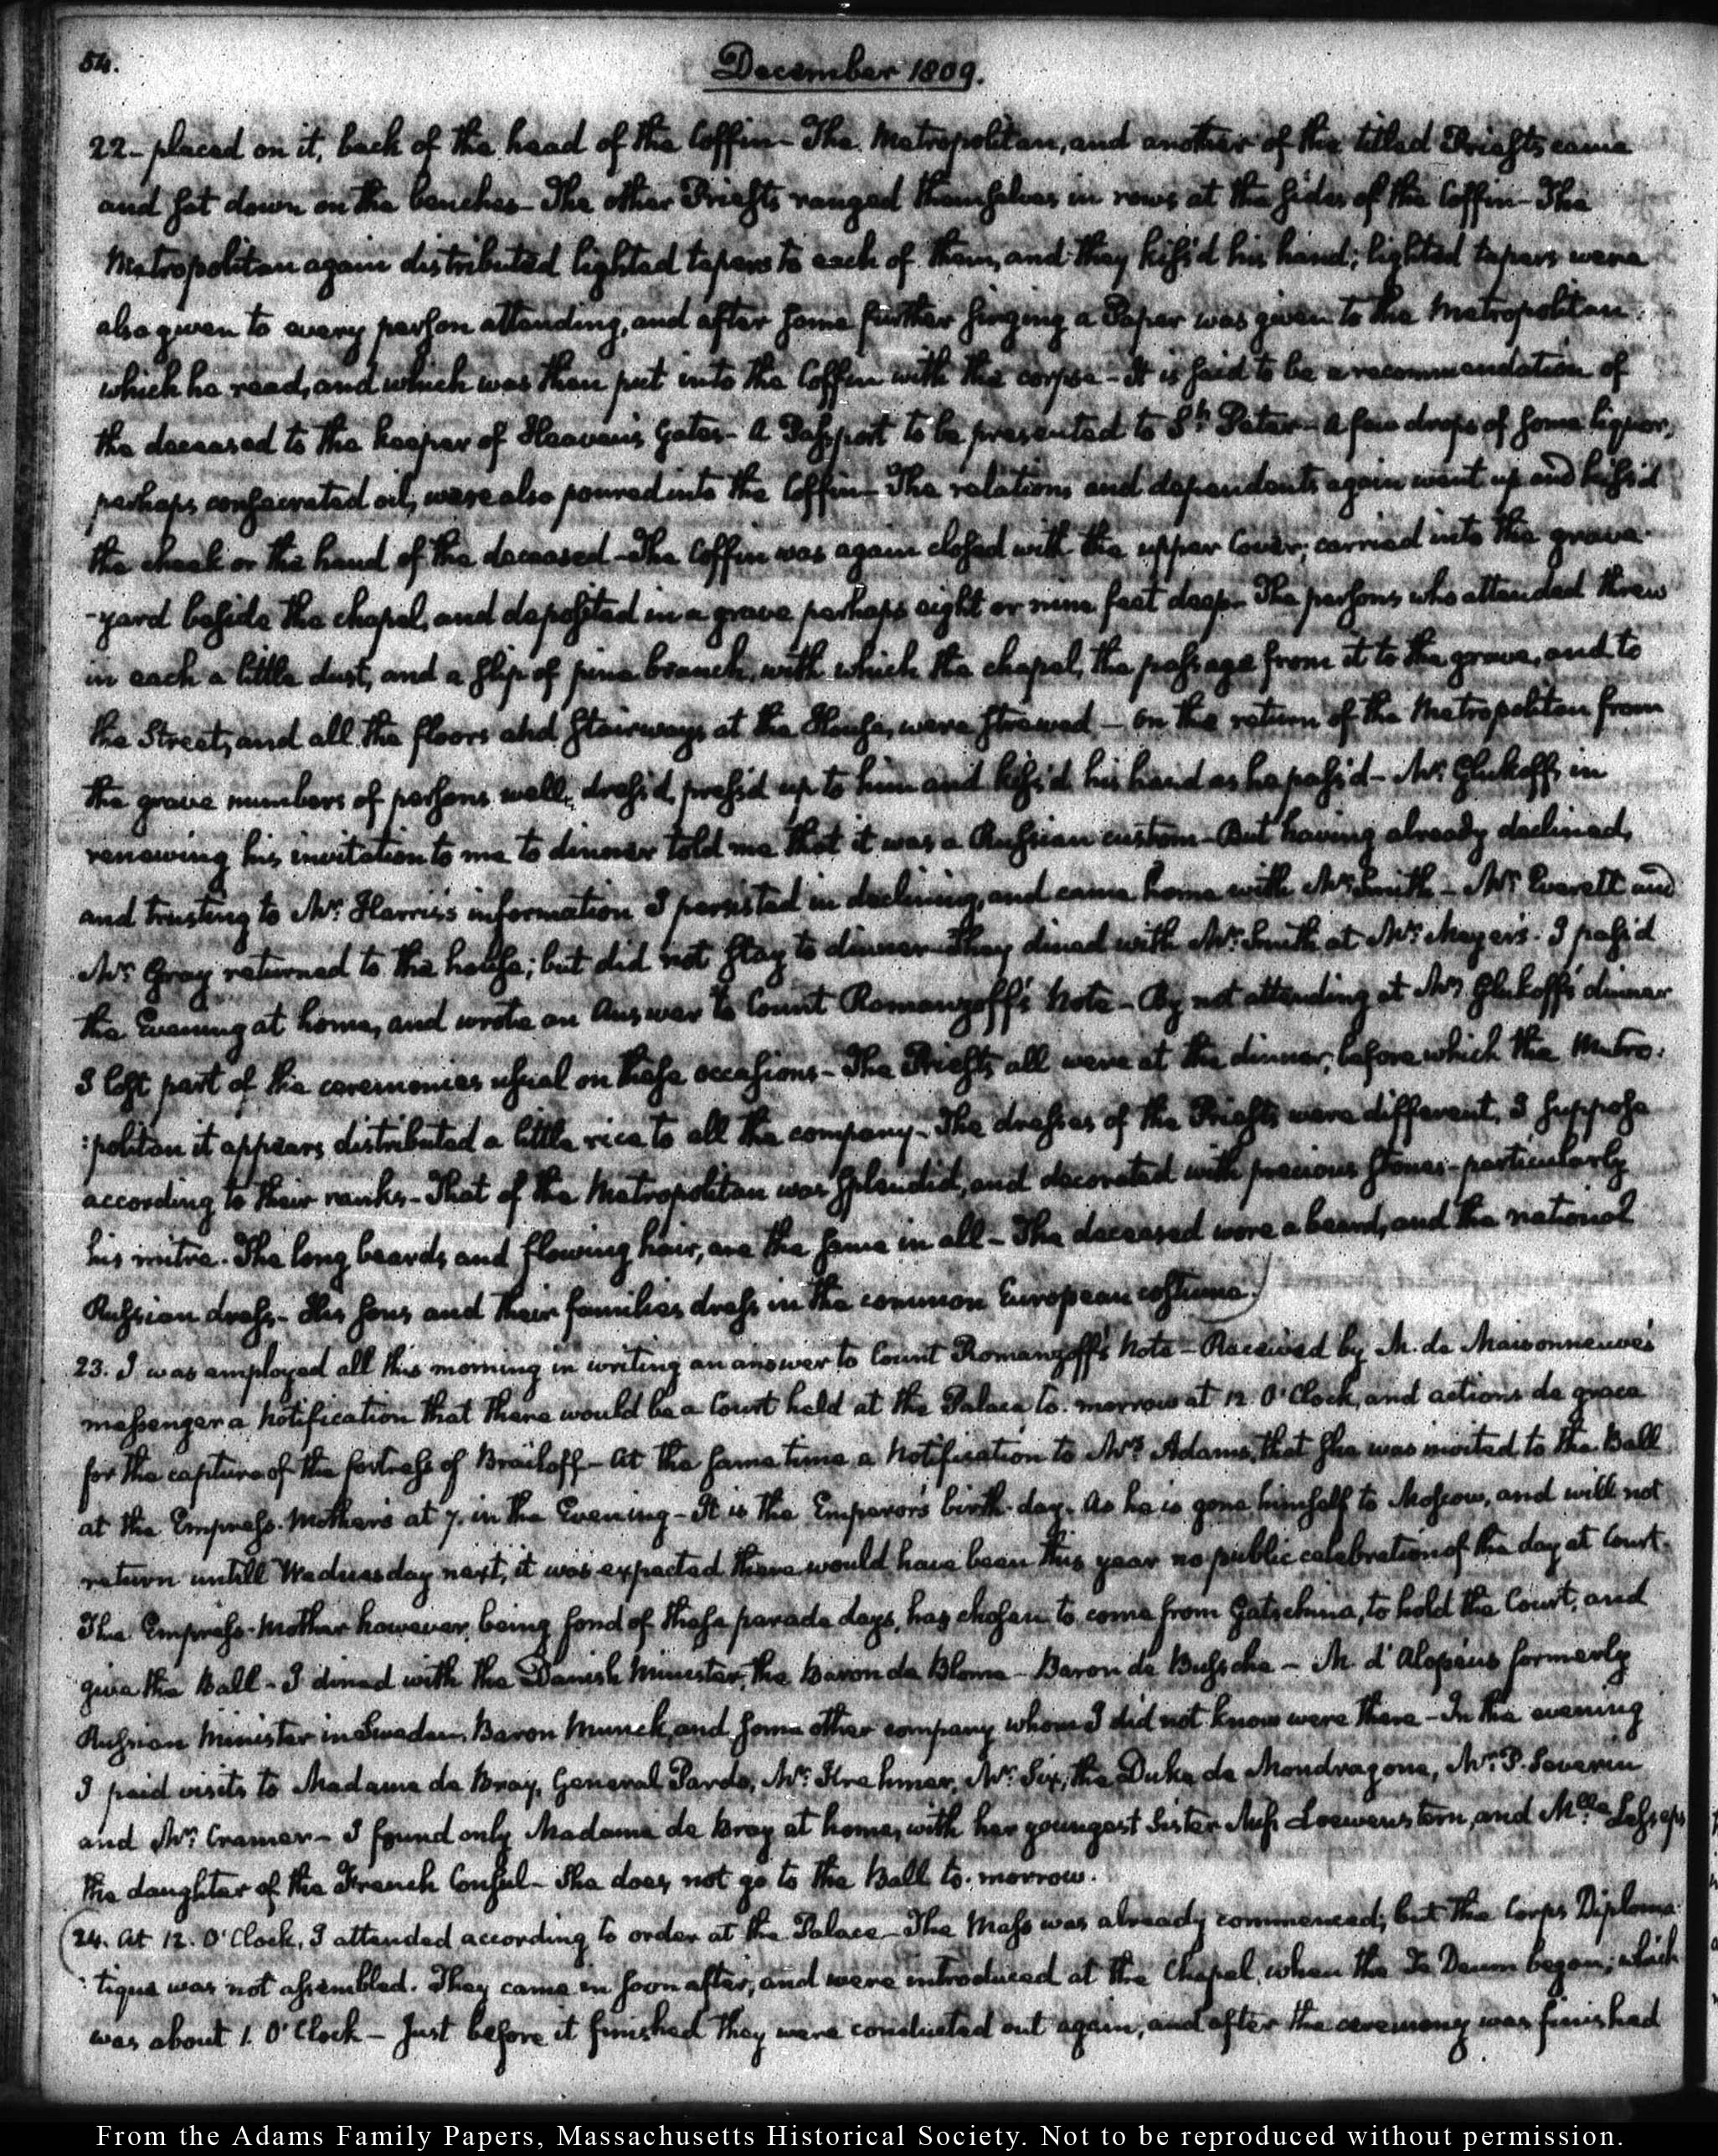 54.
December 1809.
22 - placed on it, back of the head of the Coffin - The Metropolitan, and another of the titled Priests came
and sat down on the benches - The other Priests ranged themselves in rows at the sides of the Coffin - The
Metropolitan again distributed lighted tapers to each of them, and they kiss'd his hand; lighted tapers were
also given to every person attending, and after some further singing a Paper was given to the Metropolitan
which he read, and which was then put into the Coffin with the corpse - It is said to be a recommendation of
the deceased to the keeper of Heaven's Gates - A Passport to be presented to St. Peter - A few drops of some liquor,
perhaps consecrated oil, were also poured into the Coffin - The relations and dependents again went up and kiss'd
the cheek or the hand of the deceased - The Coffin was again closed with the upper Cover; carried into the grave-
-yard beside the chapel, and deposited in a grave perhaps eight or nine feet deep - The persons who attended threw
in each a little dust, and a slip of pine branch, with which the chapel, the passage from it to the grave, and to
the Street, and all the floors and stairways at the House, were strewed - On the return of the Metropolitan from
the grave numbers of persons well dress'd, press'd up to him and kiss'd his hand as he pass'd - Mr. Glukoff, in
renewing his invitation to me to dinner told me that it was a Russian custom - But having already declined,
and trusting to Mr. Harris's information I persisted in declining, and came home with Mr. Smith - Mr. Everett and
Mr. Gray returned to the house; but did not stay to dinner - They dined with Mr. Smith at Mr. Meyer's. I pass'd
the Evening at home, and wrote an Answer to Count Romanzoff's Note - By not attending at Mr. Glukoff's dinner
I lost part of the ceremonies usual on these occasions - The Priests all were at the dinner, before which the Metro:
:politan it appears distributed a little rice to all the company - The dresses of the Priests were different, I suppose
according to their ranks - That of the Metropolitan was splendid, and decorated with precious stones - particularly
his mitre. The long beards and flowing hair, are the same in all - The deceased wore a beard, and the national
Russian dress - His sons and their families dress in the common European costume.)
23. I was employed all this morning in writing an answer to Count Romanzoff's Note - Received by M. de Maisonneuve's
messenger a Notification that there would be a Court held at the Palace to-morrow at 12. O'Clock, and actions de grace
for the capture of the fortress of Brailoff - At the same time a Notification to Mrs. Adams, that she was invited to the Ball
at the Empress-Mother's at 7. in the Evening - It is the Emperor's birth-day. As he is gone himself to Moscow, and will not
return untill Wednesday next, it was expected there would have been this year no public celebration of the day at Court.
The Empress-Mother however, being fond of these parade days, has chosen to come from Gatschina, to hold the Court, and
give the Ball - I dined with the Danish Minister, the Baron de Blome - Baron de Bussche - M. d'Alopeus formerly
Russian Minister in Sweden, Baron Munck, and some other company whom I did not know were there - In the evening
I paid visits to Madame de Bray, General Pardo, Mr. Krehmer, Mr. Six, the Duke de Mondragone, Mr. P. Severin
and Mr. Cramer - I found only Madame de Bray at home, with her youngest Sister Miss Loewenstern, and Mlle. Lesseps
the daughter of the French Consul - She does not go to the Ball to-morrow.
(24. At 12. O'Clock, I attended according to order at the Palace - The Mass was already commenced; but the Corps Diploma-
:tique was not assembled. They came in soon after, and were introduced at the Chapel, when the Te Deum began; which
was about 1. O'Clock - Just before it finished they were conducted out again, and after the ceremony was finished
From the Adams Family Papers, Massachusetts Historical Society. Not to be reproduced without permission.